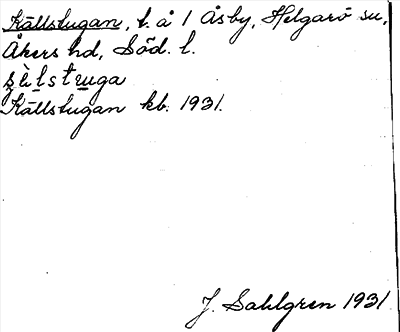 Källstugan, t. å 1 Åsby, Helgarö sn,
Åkers hd, Söd. l.
s̨èlstu̲ga
Källstugan kb. 1931.
J. Sahlgren 1931